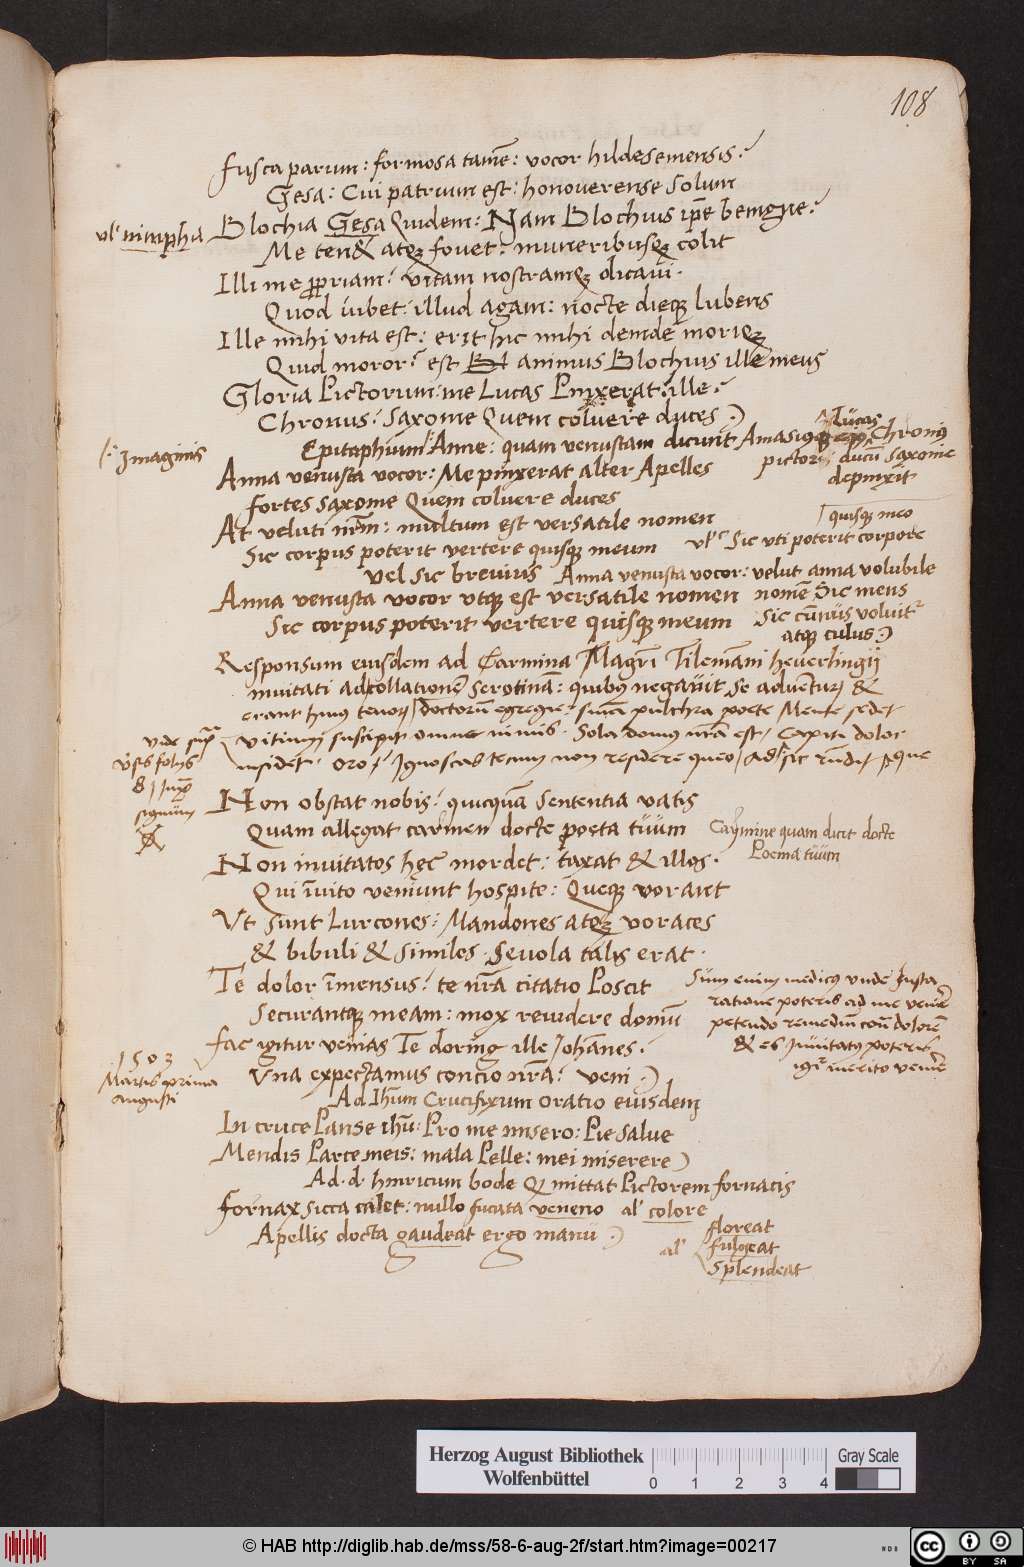 108
fusca parum: formosa tamē: vocor hildesemensis.
Gesa: Cui patrium est: honouerense solum
vl' nimpha
Blochia Gesa Quidem: Nam Blochius ip̄e benigne:
Me ten& atqꝫ fouet: muneribusqꝫ colit
Illi me ꝓpriam: vitam nostramqꝫ dicaui.
Quod iubet: illud agam: nocte dieqꝫ lubens
Ille mihi vita est: erit hic mihi deinde moriqꝫ
Quid moror? est animus Blochius ille meus
Gloria Pictorum: me Lucas Pinxerat: ille:
Chronus: saxonie Quem coluere duces.
Epitaphium Anne: quam venustam dicunt Amasius Lucas Chronius
pictor: ducū saxonie
depinxit
Imaginis
Anna venusta vocor: Me pinxerat alter Apelles
fortes saxonie Quem coluere duces
At veluti nr̄m: multum est versatile nomen
Sic corpus poterit vertere quisqꝫ meum
quisqꝫ meo
vl' Sic vti poterit corpore
vel sic breuius
Anna venusta vocor: velut anna volubile
nomē Sic meus
Sic cunnus voluitr
atqꝫ culus
Anna venusta vocor vtqꝫ est versatile nomen
Sic corpus poterit vertere quisqꝫ meum
Responsum eiusdem ad Carmina Magrī Tilemanni heuerlingij
inuitati ad collationē serotinā: quibus negauit se aduenturū &
erant huius tenoris doctorū egregie: sūma pulchra poete Mente sedet
vitium suscipit omne nimis. Sola domus nr̄a est, Capiti dolor
insidet. Oro, Ignoscas tecum non residere queo, Ad sic rūdit, eque
vide supra
vers folijs
8 supra
signum
Non obstat nobis: quicquā sententia vatis
Quam allegat carmen docte poeta tuum
Carmine quam dicit docte
Poema tuum
Non inuitatos hęc mordet: taxat & illos.
Qui īuito veniunt hospite: Queqꝫ vorant
Vt sunt Lurcones: Mandones atqꝫ voraces
& bibuli & similes. Seuola talis erat.
Te dolor īmensus: te nr̄a citatio Poscit
Securantqꝫ meam: mox reuidere domū
Sum enim medicus vnde Iusta
ratione poteris ad me venire
petendo remediū contra dolorē
& es inuitatus poteris
igr̄ merito venire
fac igitur venias Te doring ille Johānes.
Vna expectamus concio nr̄a: veni.
1503
Martis prima
augusti
Ad Ihūm Crucifixum oratio eiusdem
In cruce Panse ihū: Pro me misero: Pie salue
Mendis Parce meis: mala Pelle: mei miserere
Ad. d. hinricum bode Q mittat Pictorem fornacis
fornax sicca calet: nullo fucata veneno al' colore
Apellis docta gaudeat ergo manu
al'
floreat
fulgeat
splendeat
Herzog August Bibliothek
Wolfenbüttel
0 1 2 3 4
Gray Scale
© HAB http://diglib.hab.de/mss/58-6-aug-2f/start.htm?image=00217
cc BY SA